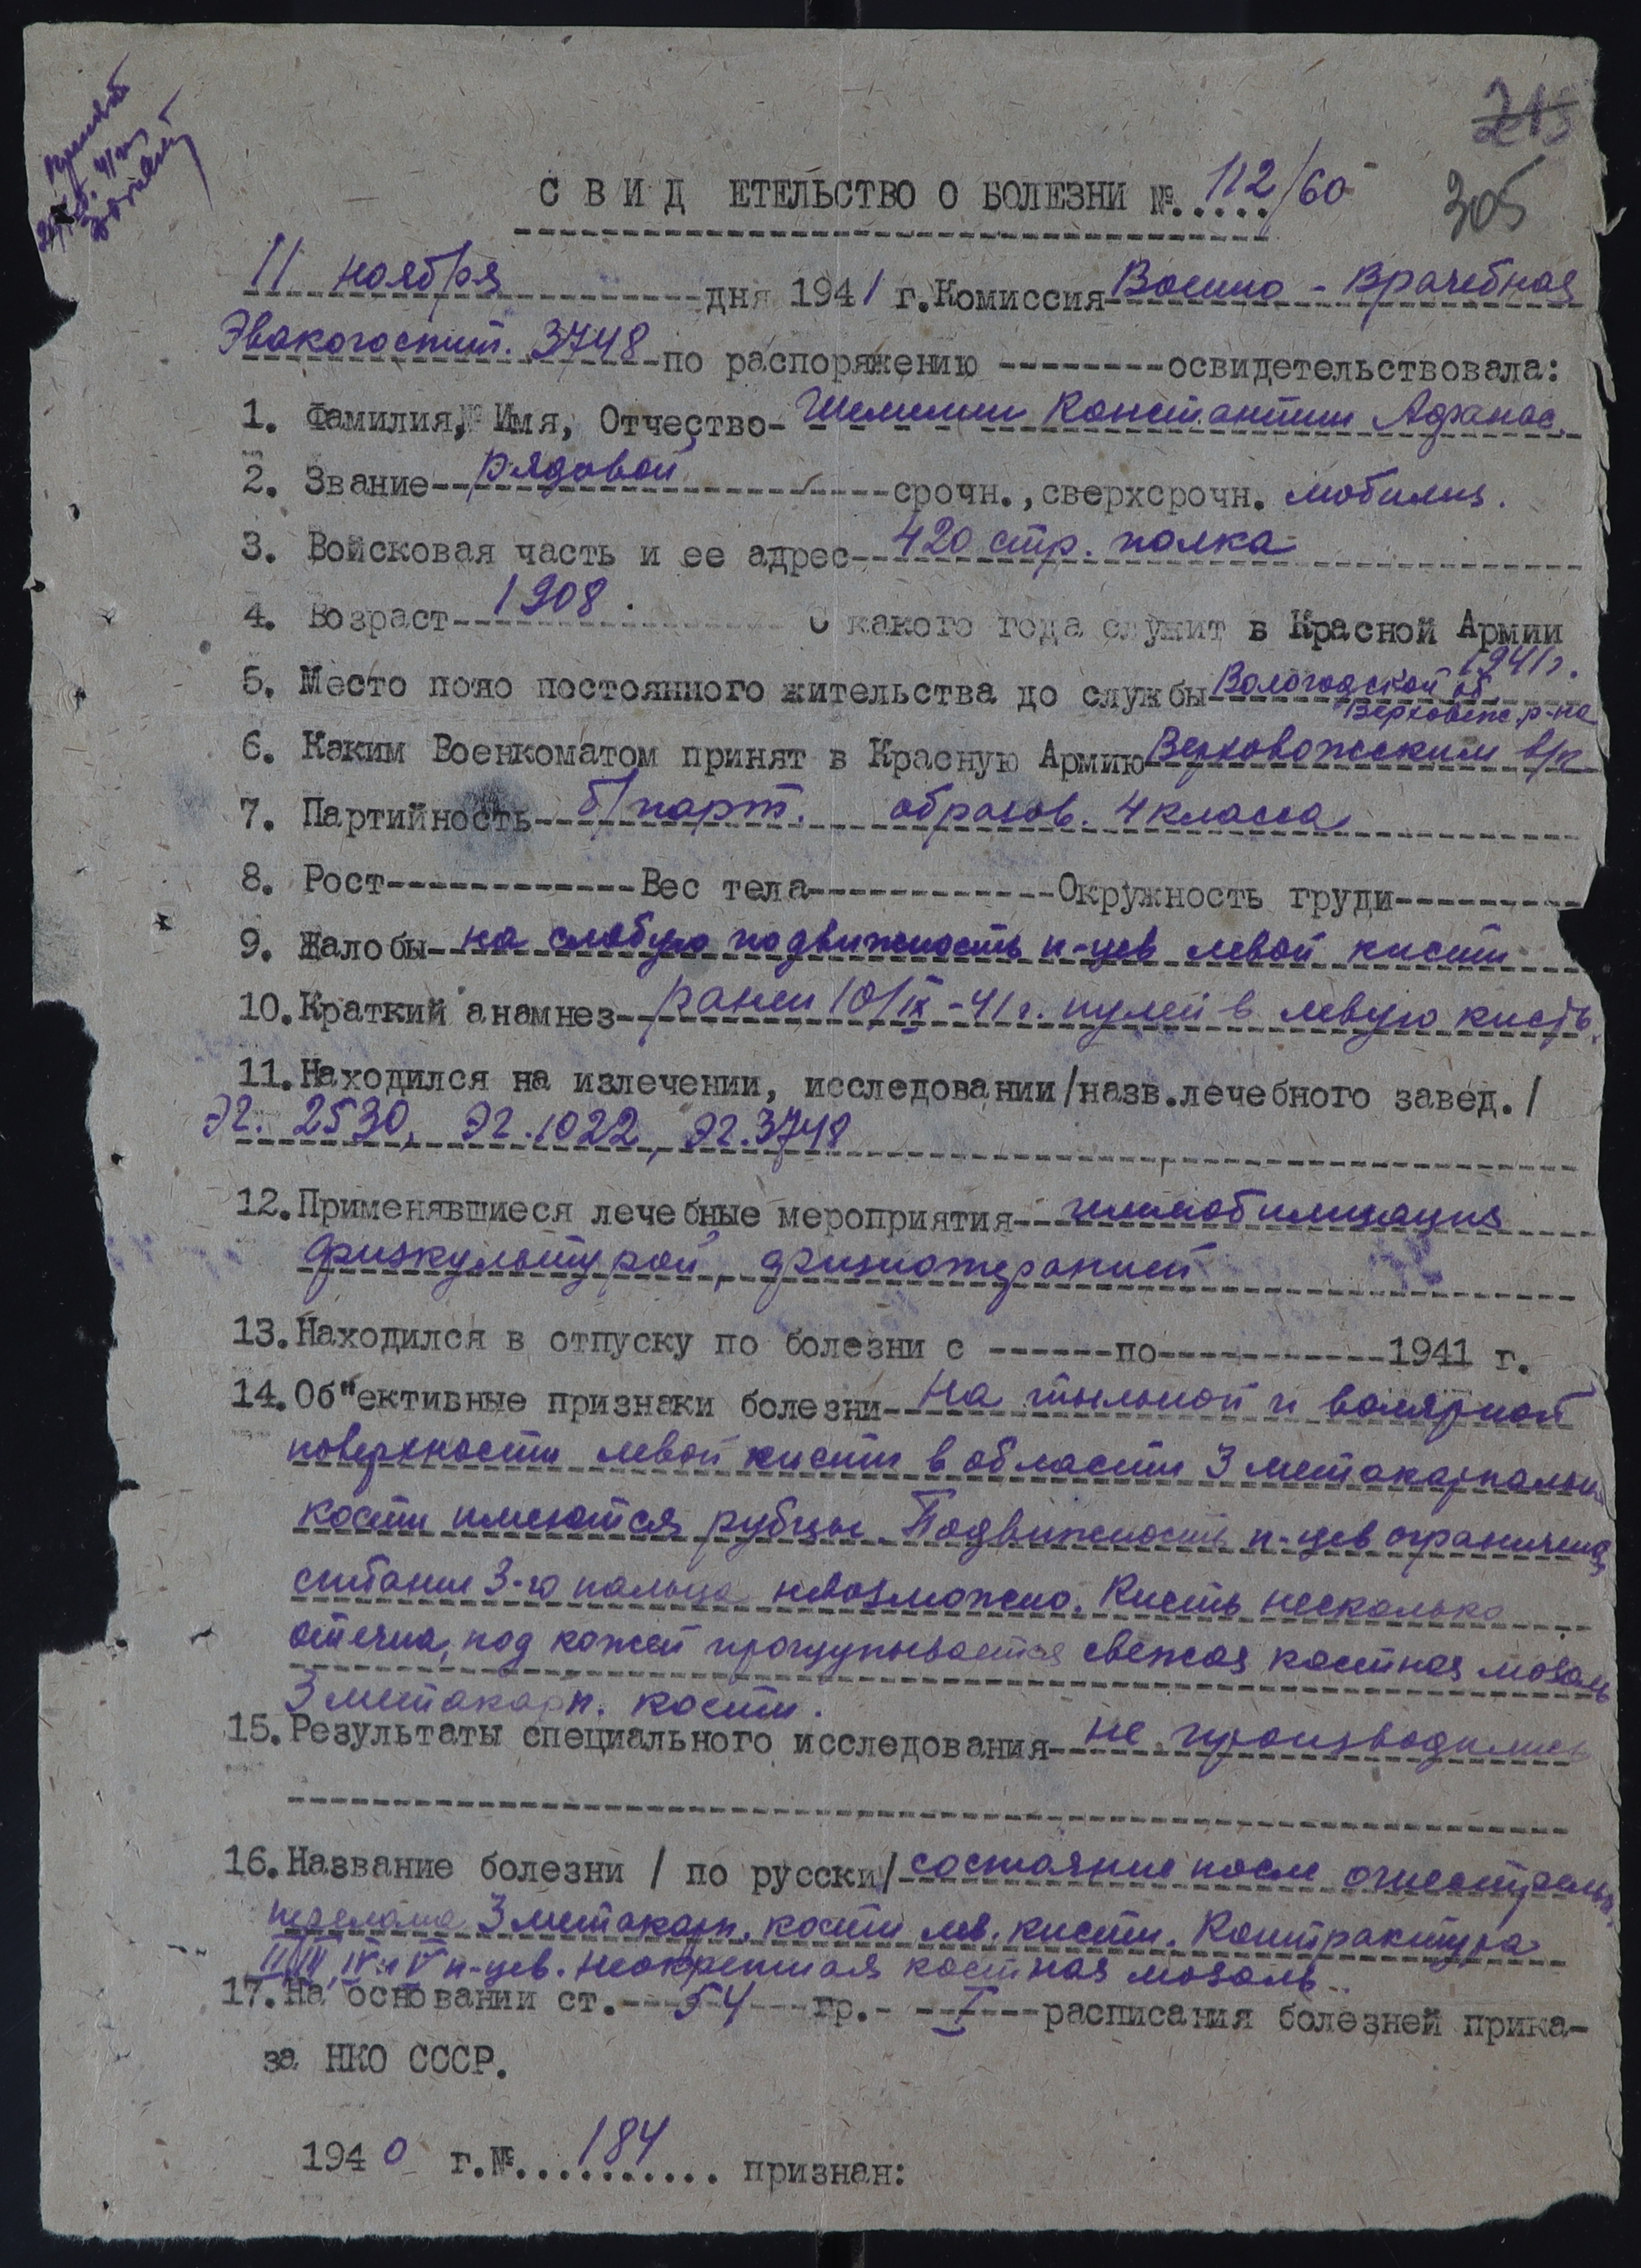 215
305
С В И Д ЕТЕЛЬСТВО О БОЛЕЗНИ №..... 112/60
11 ноября дня 1941 г. Комиссия Военно-Врачебная
Эвакогоспит. 3748 по распоряжению --------освидетельствовала:
1. Фамилия, Имя, Отчество- Константин Афанас.
2. Звание-- рядовой срочн.,сверхсрочн. мобилиз.
3. Войсковая часть и ее адрес-- 420 стр. полка
4. Возраст-- 1908. С какого года служит в Красной Армии
1941 г.
5. Место пояо постоянного жительства до службы Вологодской об.
Верховаж. р-на
6. Каким Военкоматом принят в Красную Армию Верховажским в/к
7. Партийность- б/парт. образов. 4 класса
8. Рост-------------Вес тела-------------Окружность груди----------
9. Жалобы-- на слабую подвижность п-цев левой кисти
10.Краткий анамнез-- ранен 10/IX-41 г. пулей в левую кисть.
11.Находился на излечении, исследовании/назв.лечебного завед./
ЭГ. 2530, ЭГ. 1022, ЭГ. 3748
12.Применявшиеся лечебные мероприятия-- иммобилизация
физкультурой, физиотерапией
13.Находился в отпуску по болезни с ------по-----------1941 г.
14.Об"ективные признаки болезни-- На тыльной и волярной
поверхности левой кисти в области 3 метакарпальн.
кости имеются рубцы. Подвижность п-цев ограничена,
сгибание 3-го пальца невозможно. Кисть несколько
отечна, под кожей прощупывается свежая костная мозоль
3 метакарп. кости.
15.Результаты специального исследования-- не производились
16.Название болезни / по русски/- состояние после огнестрельн.
перелома 3 метакарп. кости лев. кисти. Контрактура
II, III, IV и V п-цев. Неокрепшая костная мозоль.
17.На основании ст.--- 54 ---гр.- -- I ---расписания болезней прика-
за НКО СССР.
1940 г.№ 184 признан: